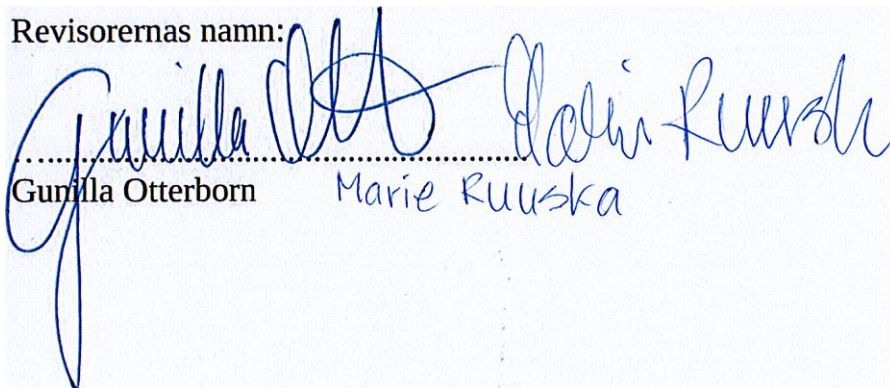 Revisorernas namn:
Gunilla Ott Marie Ruuska
Gunilla Otterborn Marie Ruuska